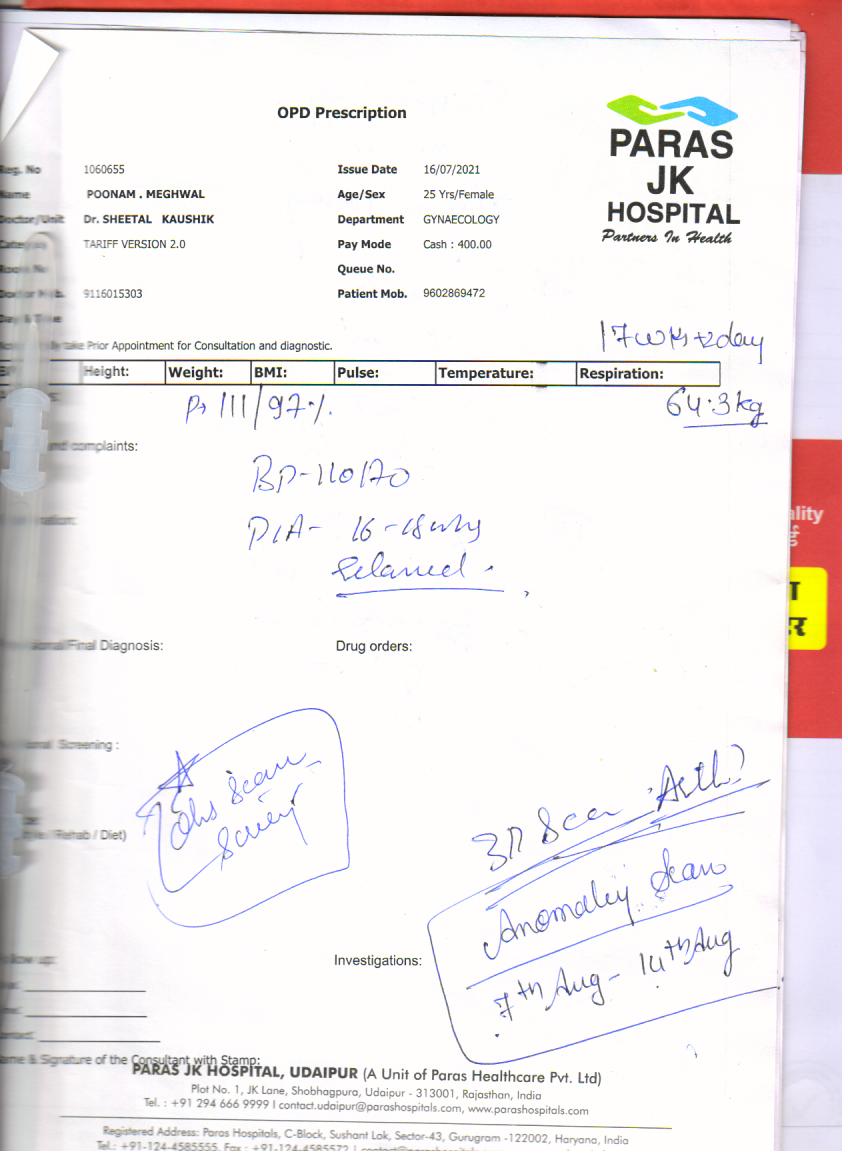 OPD Prescription
PARAS
JK
HOSPITAL
Partners In Health
Reg. No 1060655 Issue Date 16/07/2021
Name POONAM . MEGHWAL Age/Sex 25 Yrs/Female
Doctor/Unit Dr. SHEETAL KAUSHIK Department GYNAECOLOGY
TARIFF VERSION 2.0 Pay Mode Cash : 400.00
Queue No.
9116015303 Patient Mob. 9602869472
take Prior Appointment for Consultation and diagnostic.
17 wks+2day
Height: Weight: BMI: Pulse: Temperature: Respiration:
P→ 111/97%. 64.3kg
and complaints:
BP-110/70
P/A- 16-18wks
Relaxed.
Final Diagnosis: Drug orders:
Screening :
Obs Scan
/ Rehab / Diet)
Anomaley Scan
up: Investigations:
7th Aug- 14th Aug
Name & Signature of the Consultant with Stamp:
PARAS JK HOSPITAL, UDAIPUR (A Unit of Paras Healthcare Pvt. Ltd)
Plot No. 1, JK Lane, Shobhagpura, Udaipur - 313001, Rajasthan, India
Tel. : +91 294 666 9999 I contact.udaipur@parashospitals.com, www.parashospitals.com
Registered Address: Paras Hospitals, C-Block, Sushant Lok, Sector-43, Gurugram -122002, Haryana, India
Tel.: +91-124-4585555, Fax : +91-124-4585572 |
ality